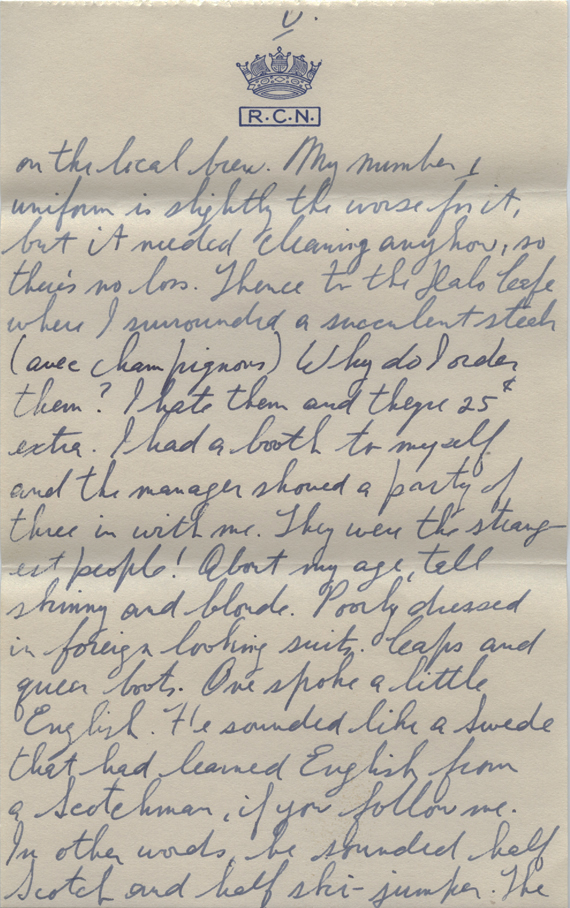 V.
R.C.N.
on the local brew. My number 1
uniform is slightly the worse for it,
but it needed cleaning anyhow, so
there's no loss. Thence to the Italo Cafe
where I surrounded a succulent steak
(avec champignons) Why do I order
them? I hate them and theyre 25¢
extra. I had a booth to myself
and the manager showed a party of
three in with me. They were the strang-
est people! About my age, tall
skinny and blonde. Poorly dressed
in foreign looking suits. Caps and
queer boots. One spoke a little
English. He sounded like a Swede
that had learned English from
a Scotchman, if you follow me.
In other words, he sounded half
Scotch and half ski-jumper. The